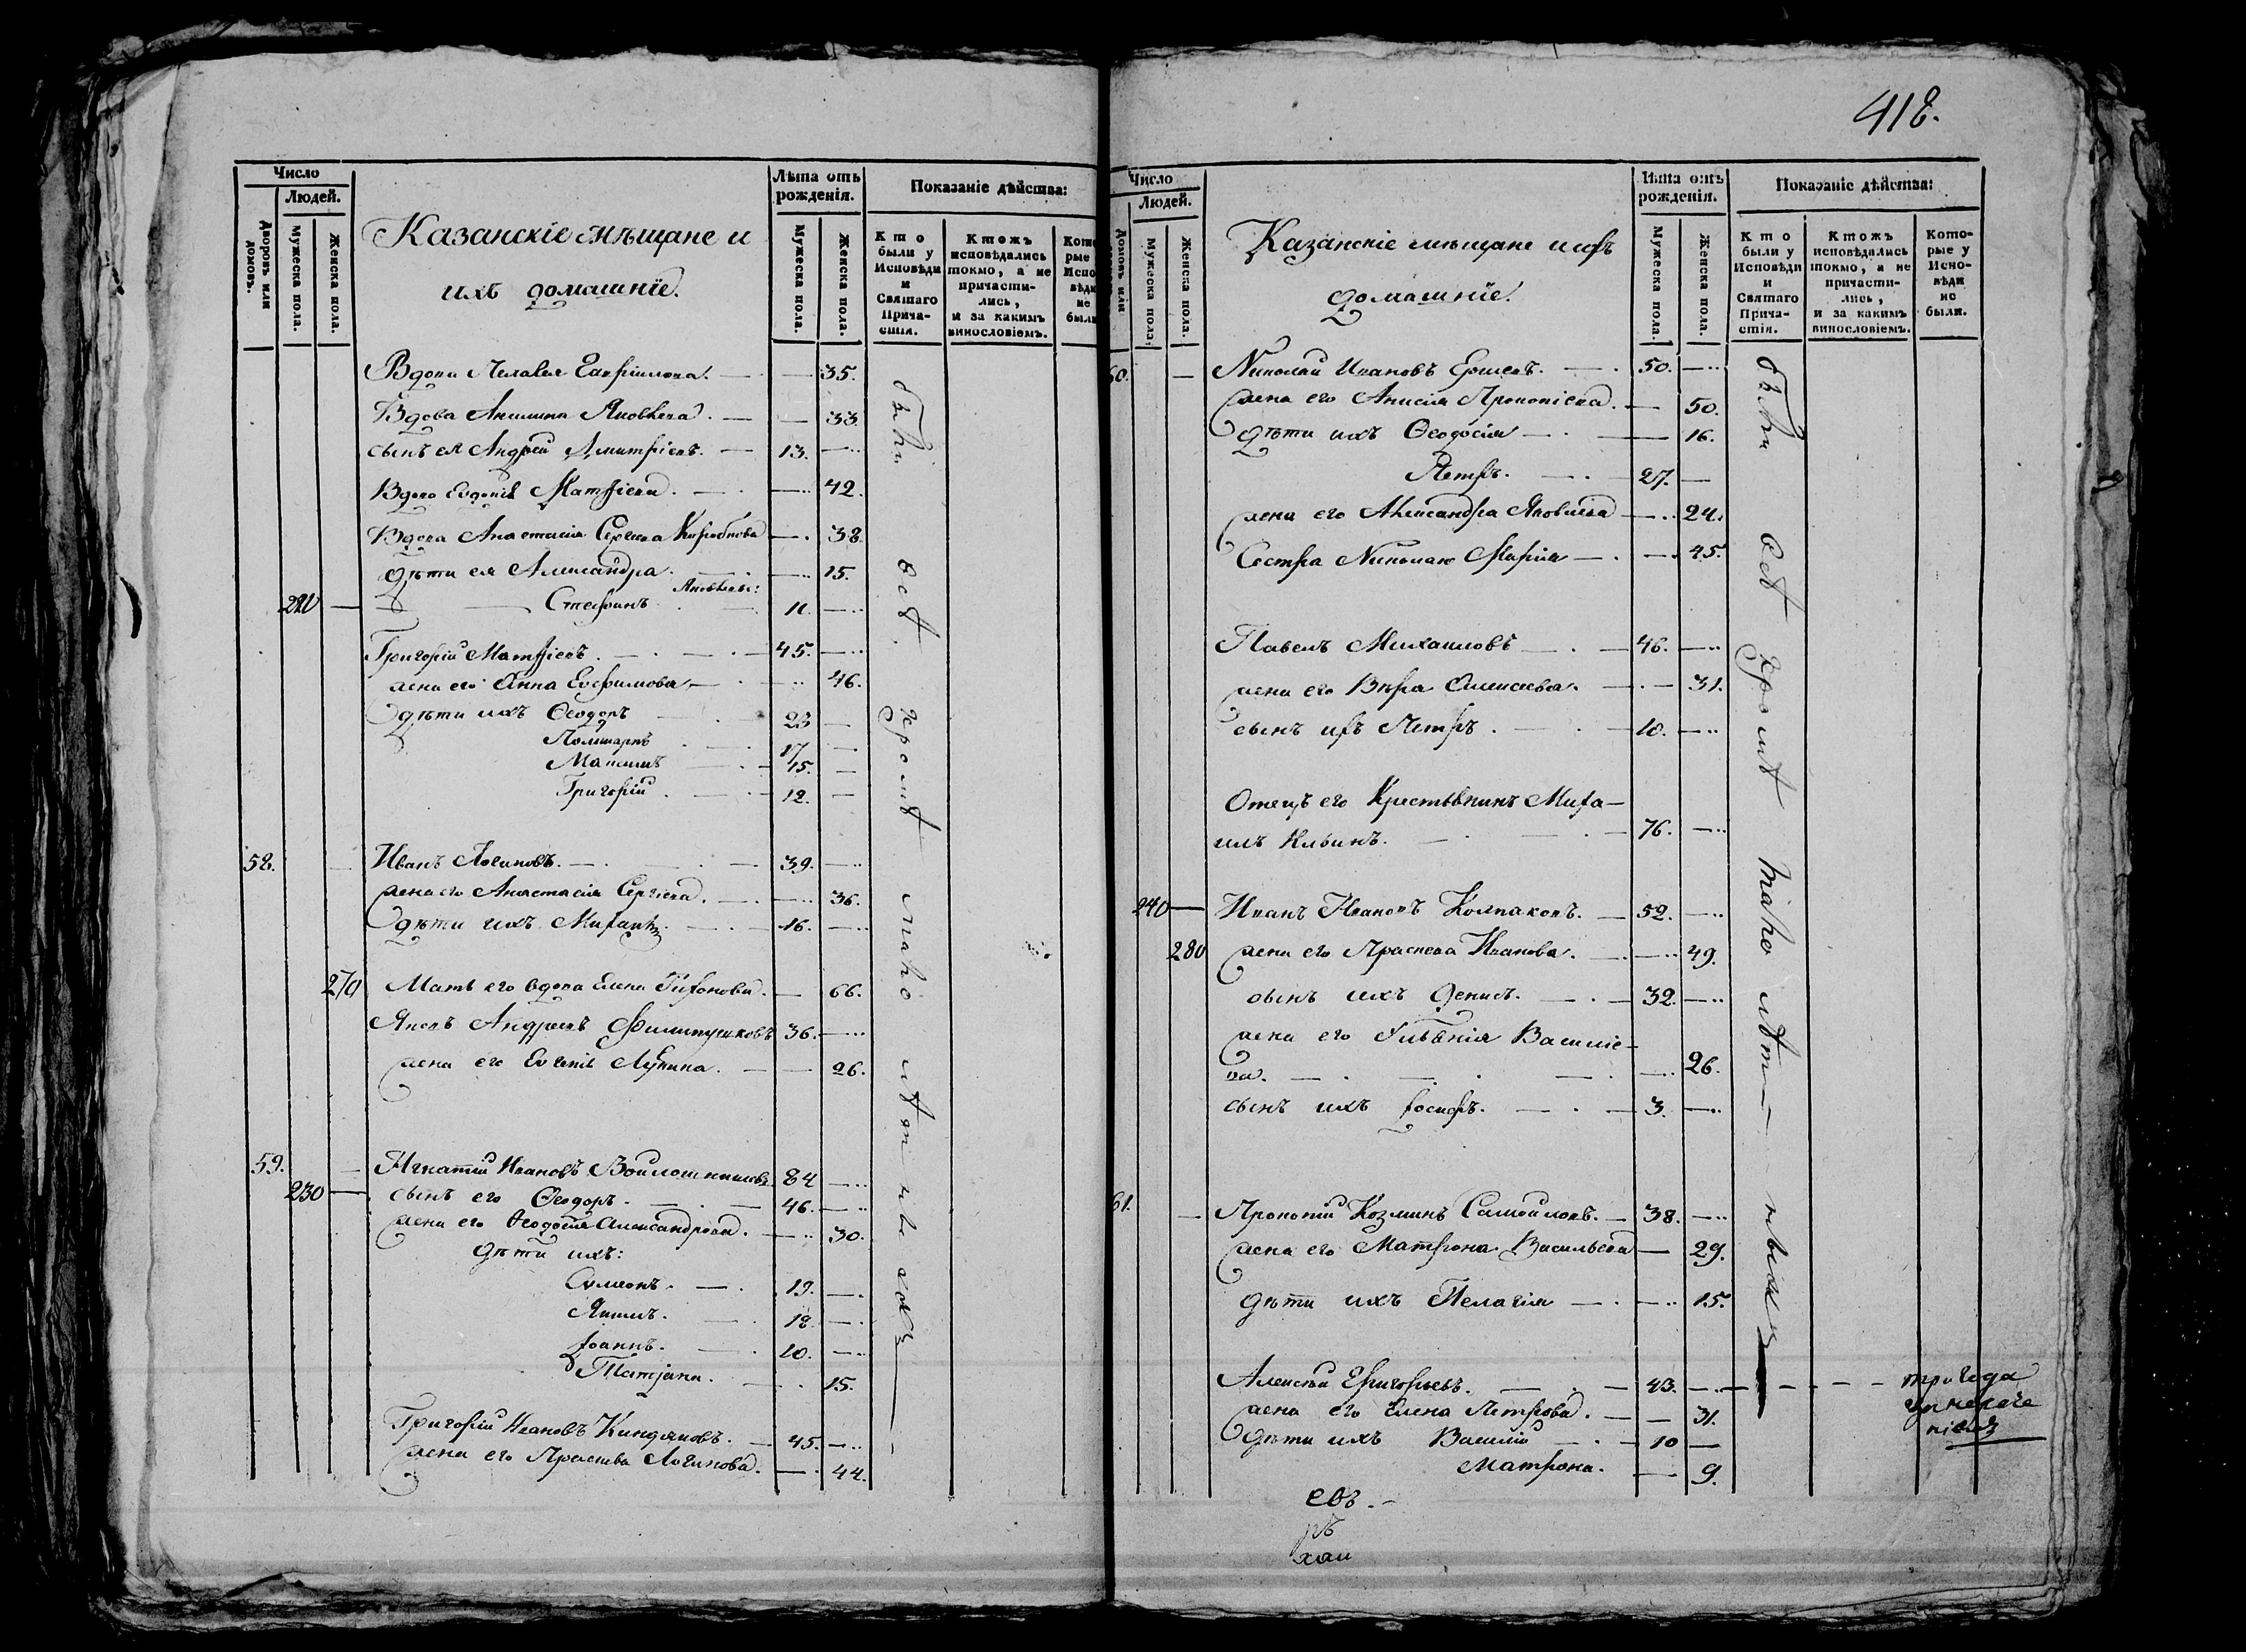 418.
Число
Людей.
Дворовъ или домовъ.
Мужеска пола.
Женска пола.
Казанскіе мѣщане и
ихъ домашніе.
Лѣта отъ рожденія.
Мужеска пола.
Женска пола.
Показаніе дѣйства:
Кто были у Исповѣди и Святаго Причастія.
Ктожъ исповѣдались токмо, а не причастились, и за какимъ винословіемъ.
Вдова Пелагея Гавріилова. — — 35.
Вдова Акилина Яковлева. — — 33.
сынъ ея Андрей Димитріевъ. — 13. —
Вдова Евдокія Матфіева. — — 42.
Вдова Анастасія Сергіева — 38.
дѣти ея Александра. — — 15.
Яковлевы:
220 — Стефанъ 11. —
Григорій Матфіевъ. — 45. —
жена его Анна Евфимова — — 46.
дѣти ихъ Ѳеодоръ 23 —
Поликарпъ 17 —
Максимъ 15. —
Григорій. 12. —
58. Иванъ Логиновъ. — 39. —
жена его Анастасія Сергіева. — 36.
дѣти ихъ Михаилъ. — 16. —
270 Мать его вдова Елена Тихонова. — 66.
Яковъ Андреевъ 36. —
жена его Евгенія Лукина. — — 26.
59. Игнатій Ивановъ Войлошниковъ 84 —
230 — сынъ его Ѳеодоръ. — 46. —
жена его Ѳеодосія Александрова. — 30.
дѣти ихъ:
Симеонъ. — 19. —
Якимъ. 12. —
Іоаннъ. 10. —
Татіана. 15.
Григорій Ивановъ Киндяковъ. — 45. —
жена его Праскева Логинова. — 44.
бѣ всѣ кромѣ мало лѣтныхъ
Число
Людей.
Мужеска пола.
Женска пола.
Казанскіе мѣщане и ихъ
домашніе.
Лѣта отъ рожденія.
Мужеска пола.
Женска пола.
Показаніе дѣйства:
Кто были у Исповѣди и Святаго Причастія.
Ктожъ исповѣдались токмо, а не причастились, и за какимъ винословіемъ.
Которые у Исповѣди не были.
60. — Николай Ивановъ Ершевъ. — 50. —
жена его Анисія Прокопіева. — 50.
дѣти ихъ Ѳеодосія — — 16.
Петръ. — 27. —
жена его Александра Яковлева — 24.
Сестра Николаю Марія — — 45.
Павелъ Михаиловъ — 46. —
жена его Вѣра Алексіева. — 31.
сынъ ихъ Петръ. — 10. —
Отецъ его Крестьянинъ Миха-
илъ Ильинъ. — 76. —
240 — Иванъ Ивановъ Колпаковъ. — 52. —
280 жена его Праскева Иванова. — 49.
сынъ ихъ Денисъ. — 32. —
жена его Василіе-
ва. — — 26.
сынъ ихъ Іосифъ. — 3. —
61. — Прокопій Козминъ Самойловъ. — 38. —
жена его Матрона Васильева — 29.
дѣти ихъ Пелагія — — 15.
Алексѣй Григорьевъ. — 43. —
жена его Елена Петрова. — — 31.
дѣти ихъ Василій — 10 —
Матрона. — 9.
всѣ кромѣ мало лѣтныхъ